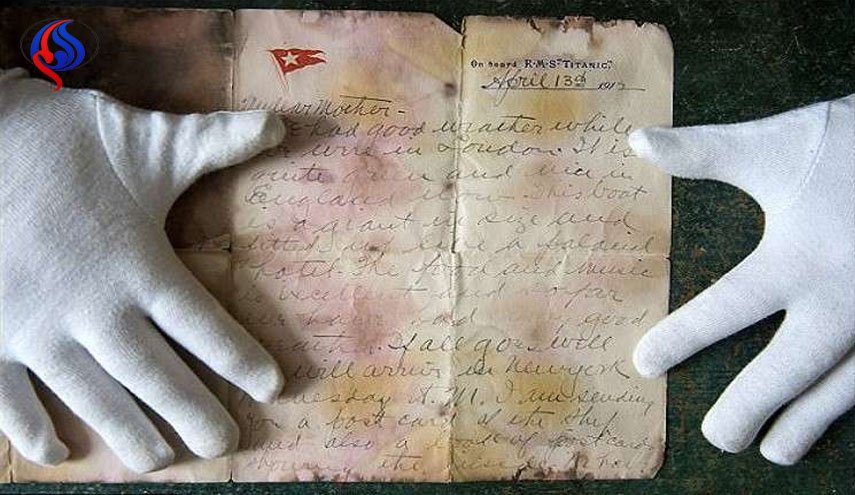 On board R.M.S. "TITANIC".
April 13th 1912
My dear Mother-
had good weather while
we were in London. It is
quite green and nice in
England now. This boat
is a giant in size and
fitted up like a palacial
hotel. The food and music
is excellent and so far
we have had good
weather. If all goes well
will arrive in New york
Wednesday A.M. I am sending
you a post card of the ship
and also a book of post cards
showing the inside